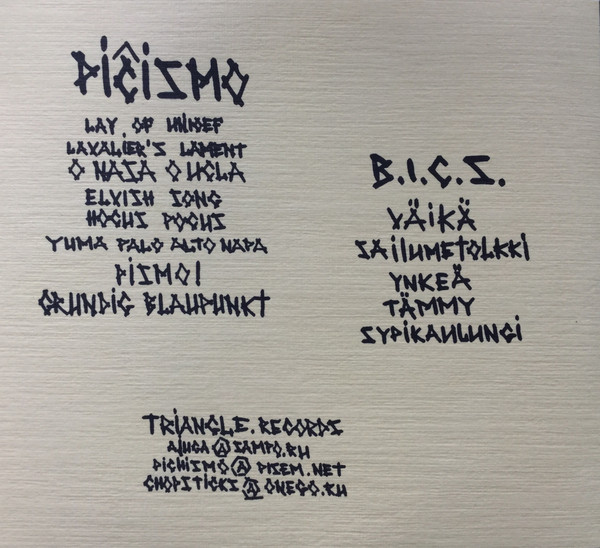 PIĈISMO
LAY OF UNICEF
LAVALIER'S LAMENT
O NASA O UCLA
ELVISH SONG
HOCUS POCUS
YUMA PALO ALTO NAPA
PISMO!
GRUNDIG BLAUPUNKT
B.I.C.S.
VÄIKÄ
SAILUMETOLKKI
YNKEÄ
TÄMMY
SYPIKAULUNGI
TRIANGLE.RECORDS
AJUGA@SAMPO.RU
PICHISMO@PISEM.NET
CHOPSTICKS@ONEGO.RU